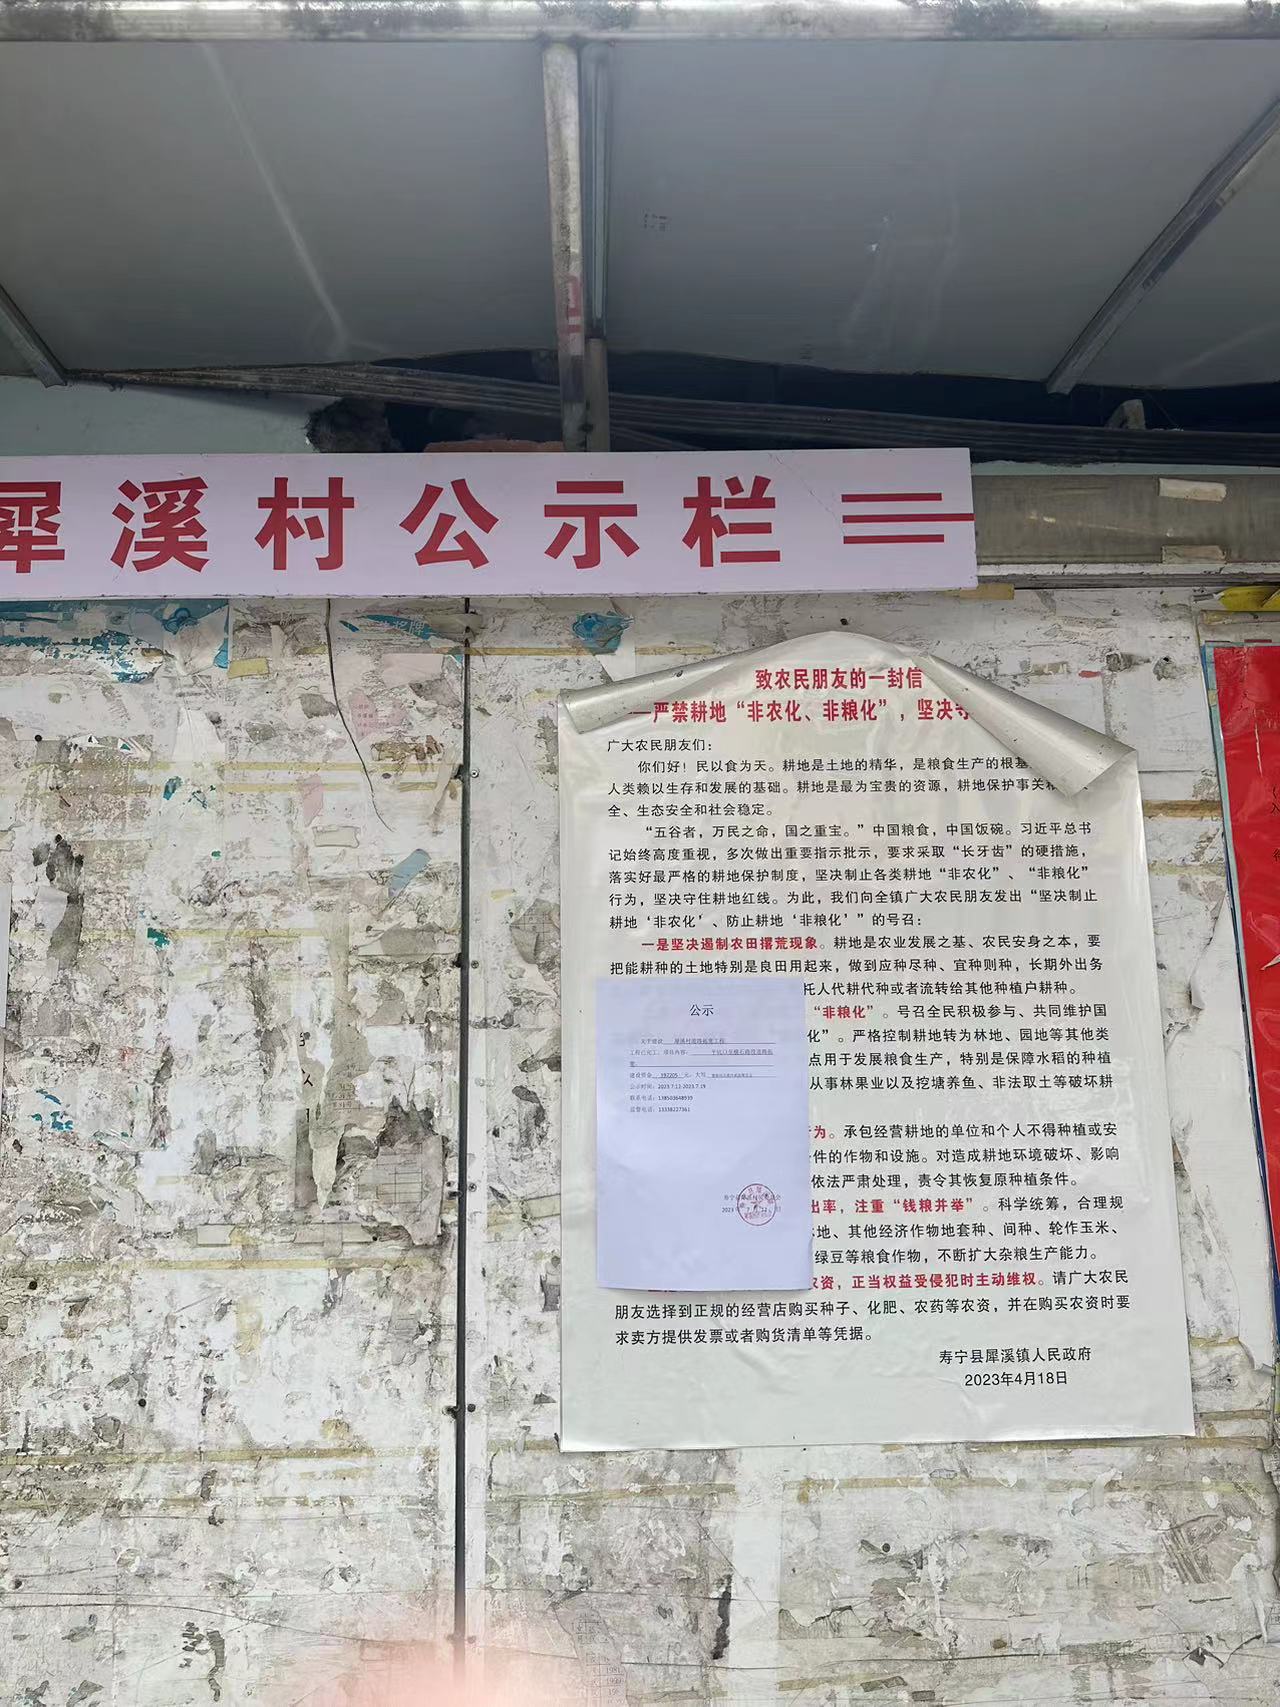 犀溪村公示栏
致农民朋友的一封信
严禁耕地“非农化、非粮化”，坚决守
广大农民朋友们：
你们好！民以食为天。耕地是土地的精华，是粮食生产的根基
人类赖以生存和发展的基础。耕地是最为宝贵的资源，耕地保护事关
全、生态安全和社会稳定。
“五谷者，万民之命，国之重宝。”中国粮食，中国饭碗。习近平总书
记始终高度重视，多次做出重要指示批示，要求采取“长牙齿”的硬措施，
落实好最严格的耕地保护制度，坚决制止各类耕地“非农化”、“非粮化”
行为，坚决守住耕地红线。为此，我们向全镇广大农民朋友发出“坚决制止
耕地‘非农化’、防止耕地‘非粮化’”的号召：
一是坚决遏制农田撂荒现象。耕地是农业发展之基、农民安身之本，要
把能耕种的土地特别是良田用起来，做到应种尽种、宜种则种，长期外出务
托人代耕代种或者流转给其他种植户耕种。
“非粮化”。号召全民积极参与、共同维护国
化”。严格控制耕地转为林地、园地等其他类
点用于发展粮食生产，特别是保障水稻的种植
从事林果业以及挖塘养鱼、非法取土等破坏耕
为。承包经营耕地的单位和个人不得种植或安
件的作物和设施。对造成耕地环境破坏、影响
依法严肃处理，责令其恢复原种植条件。
出率，注重“钱粮并举”。科学统筹，合理规
地、其他经济作物地套种、间种、轮作玉米、
绿豆等粮食作物，不断扩大杂粮生产能力。
农资，正当权益受侵犯时主动维权。请广大农民
朋友选择到正规的经营店购买种子、化肥、农药等农资，并在购买农资时要
求卖方提供发票或者购货清单等凭据。
寿宁县犀溪镇人民政府
2023年4月18日
公示
关于建设 犀溪村道路拓宽工程
工程已完工，项目内容：
宽
建设资金 192205 元，大写
公示时间：2023.7.12-2023.7.19
联系电话：13850364893
监督电话：13338227361
寿宁县犀溪村民委员会
2023年7月12日